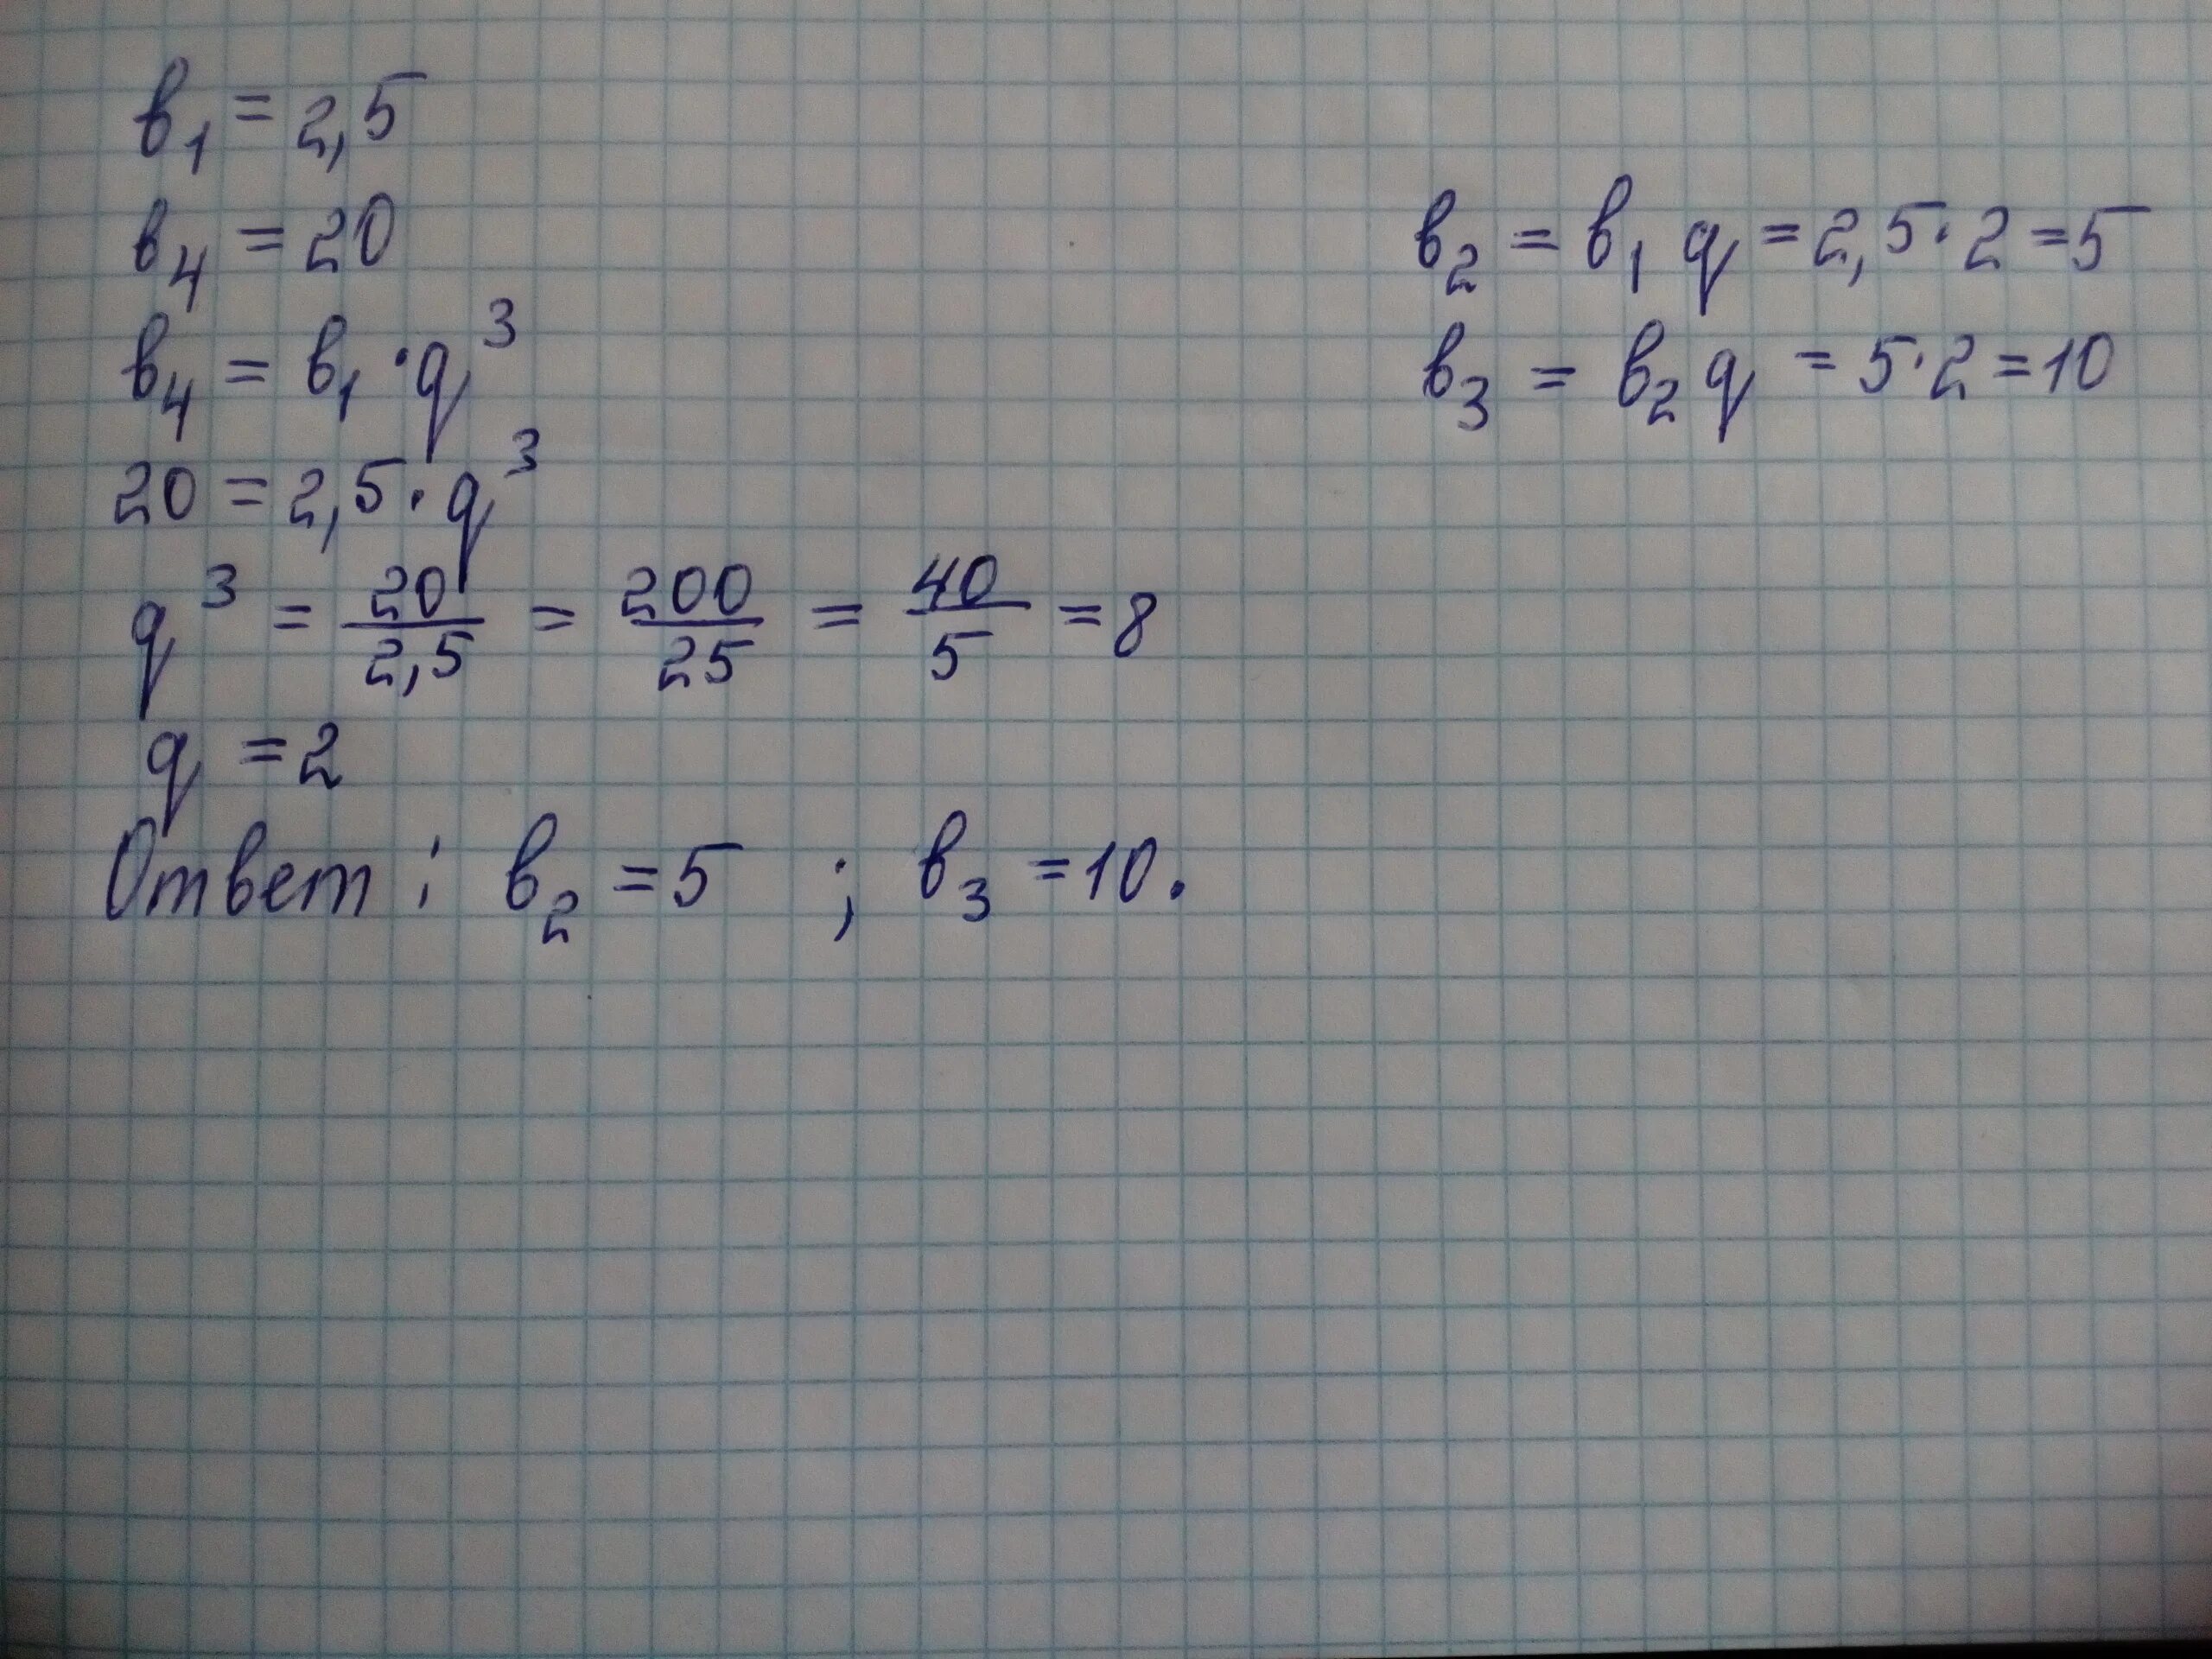 в₁ = 2,5
в₄ = 20
в₄ = в₁ · q³
20 = 2,5 · q³
q³ = 20/2,5 = 200/25 = 40/5 = 8
q = 2
Ответ: в₂ = 5 ; в₃ = 10.
в₂ = в₁ q = 2,5 · 2 = 5
в₃ = в₂ q = 5 · 2 = 10